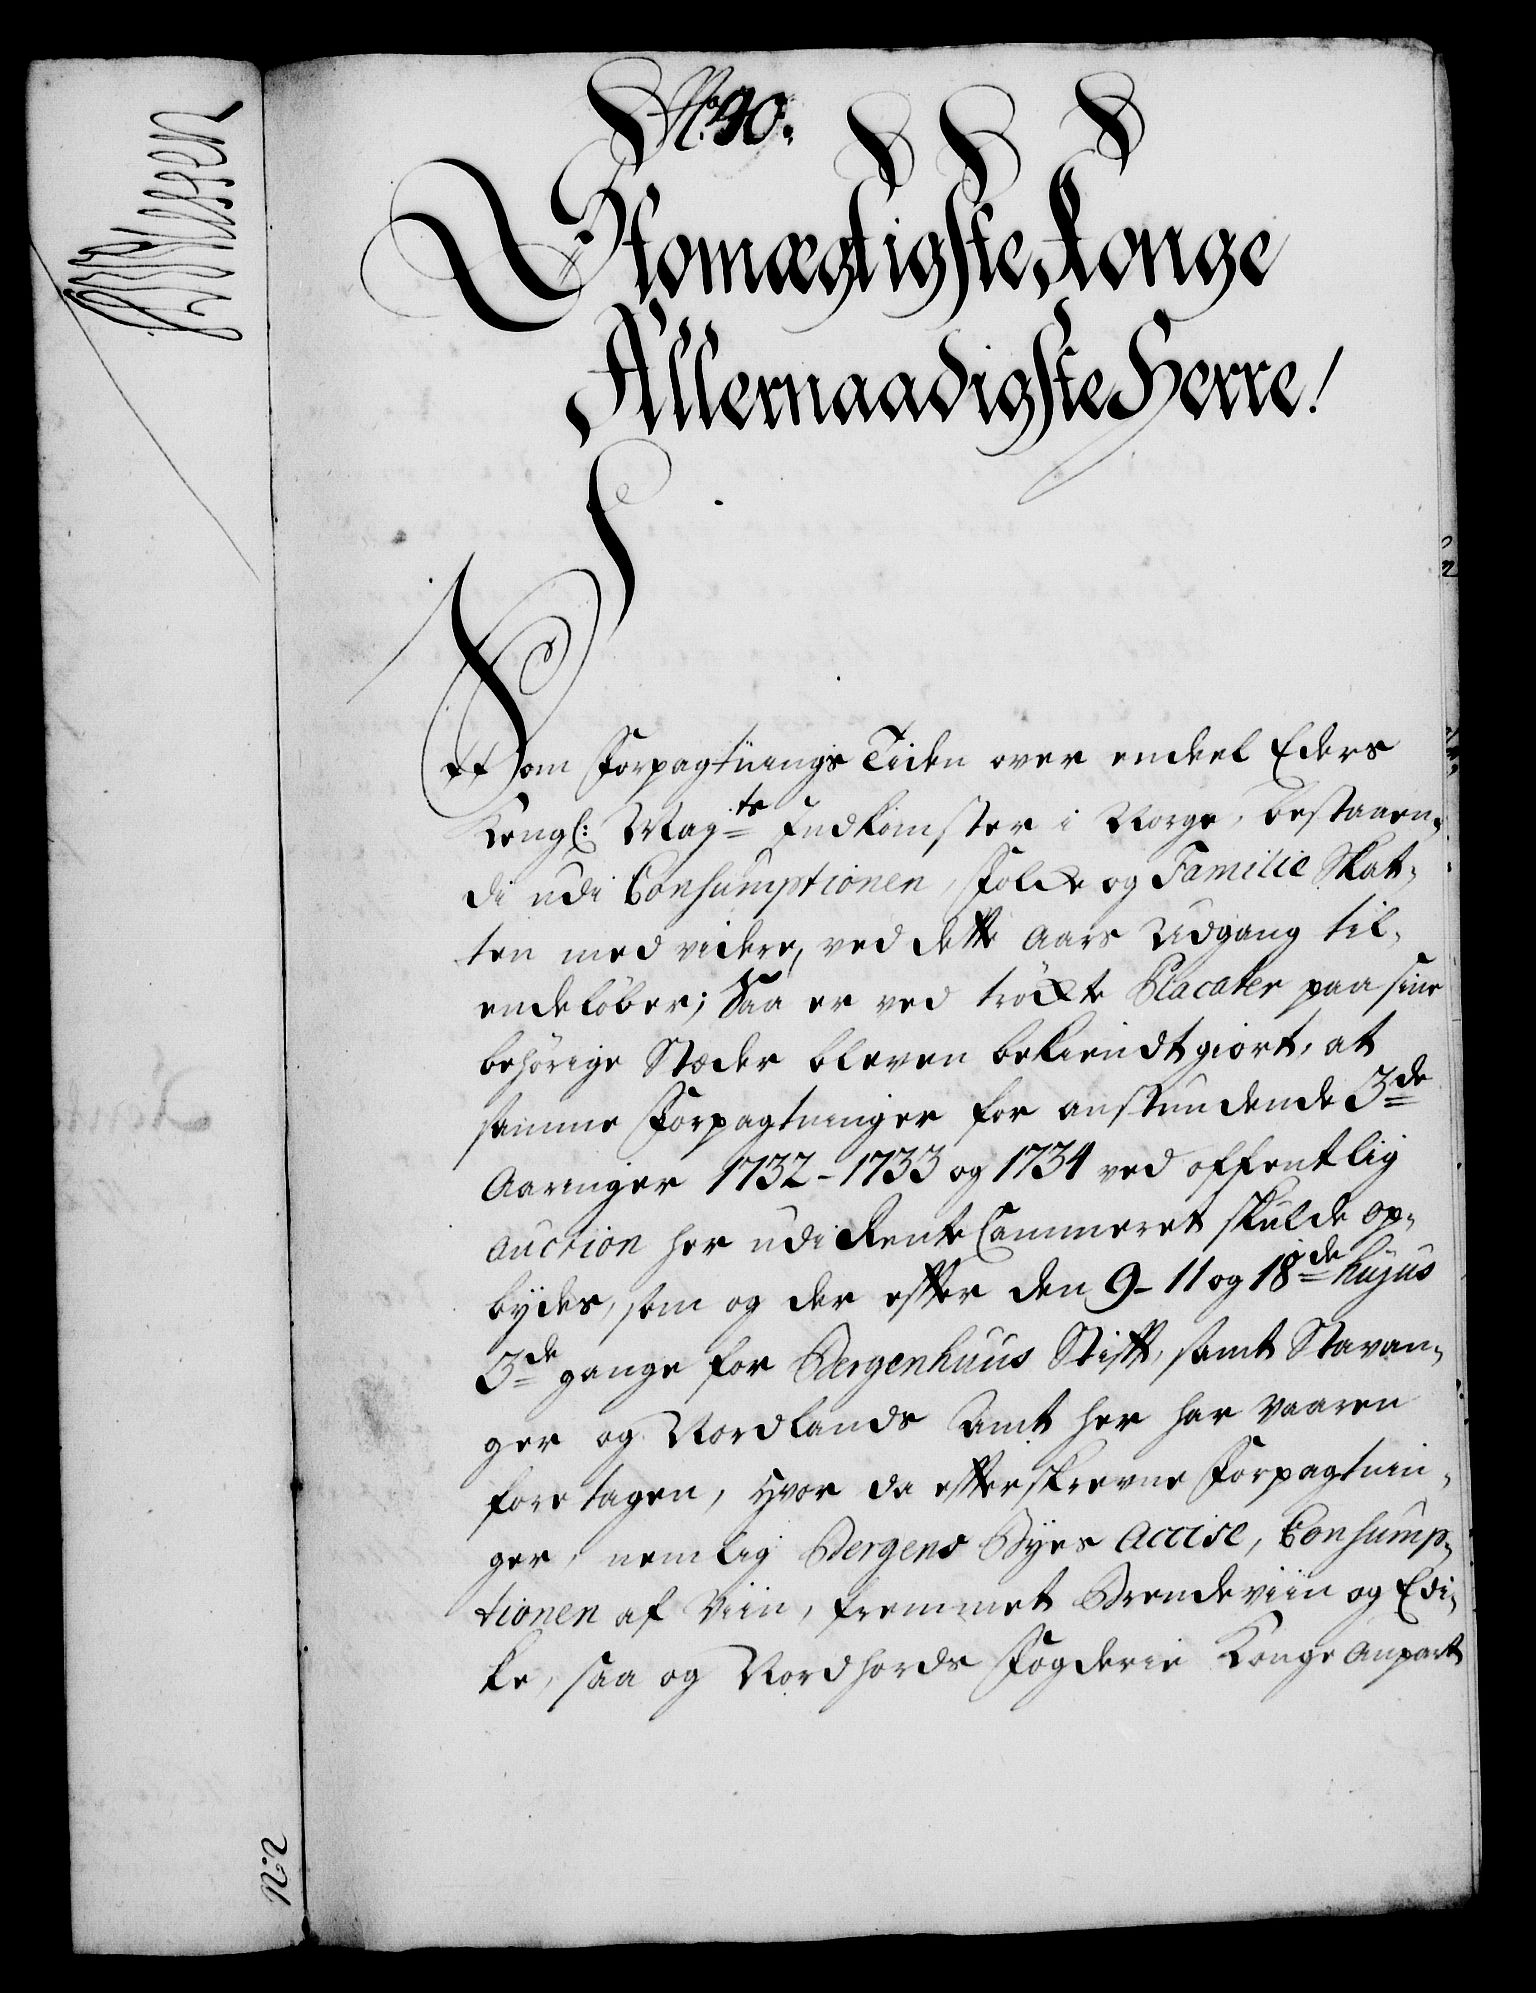 No. 40.
Stormægtigste Konge
Allernaadigste Herre!
Som Forpagtnings Tiden over endeel Eders
Kongl: Mayts Indkomster i Norge, bestaaen-
de udi Consumptionen, Folke og Familie Skat-
ten med videre, ved dette Aars Udgang til-
endeløber; Saa er ved tröckte Placater paa sine
behörige Stæder bleven bekiendtgiort, at
samme Forpagtninger for anstundende 3de
Aaringer 1732 - 1733 og 1734 ved offentlig
Auction her udi RenteCammeret skulde op-
bydes, som og der effter den 9- 11 og 18de hujus
3de gange for Bergenhuus Stifft, samt Stavan-
ger og Nordlands Amt her har vaaren
foretagen, hvor da effterskrevne Forpagtnin-
ger, nemlig Bergens Byes Accise, Consump-
tionen af Viin, fremmet Brendeviin og Edi-
ke, saa og Nordhords Fogderie Konge Anpart
N:2